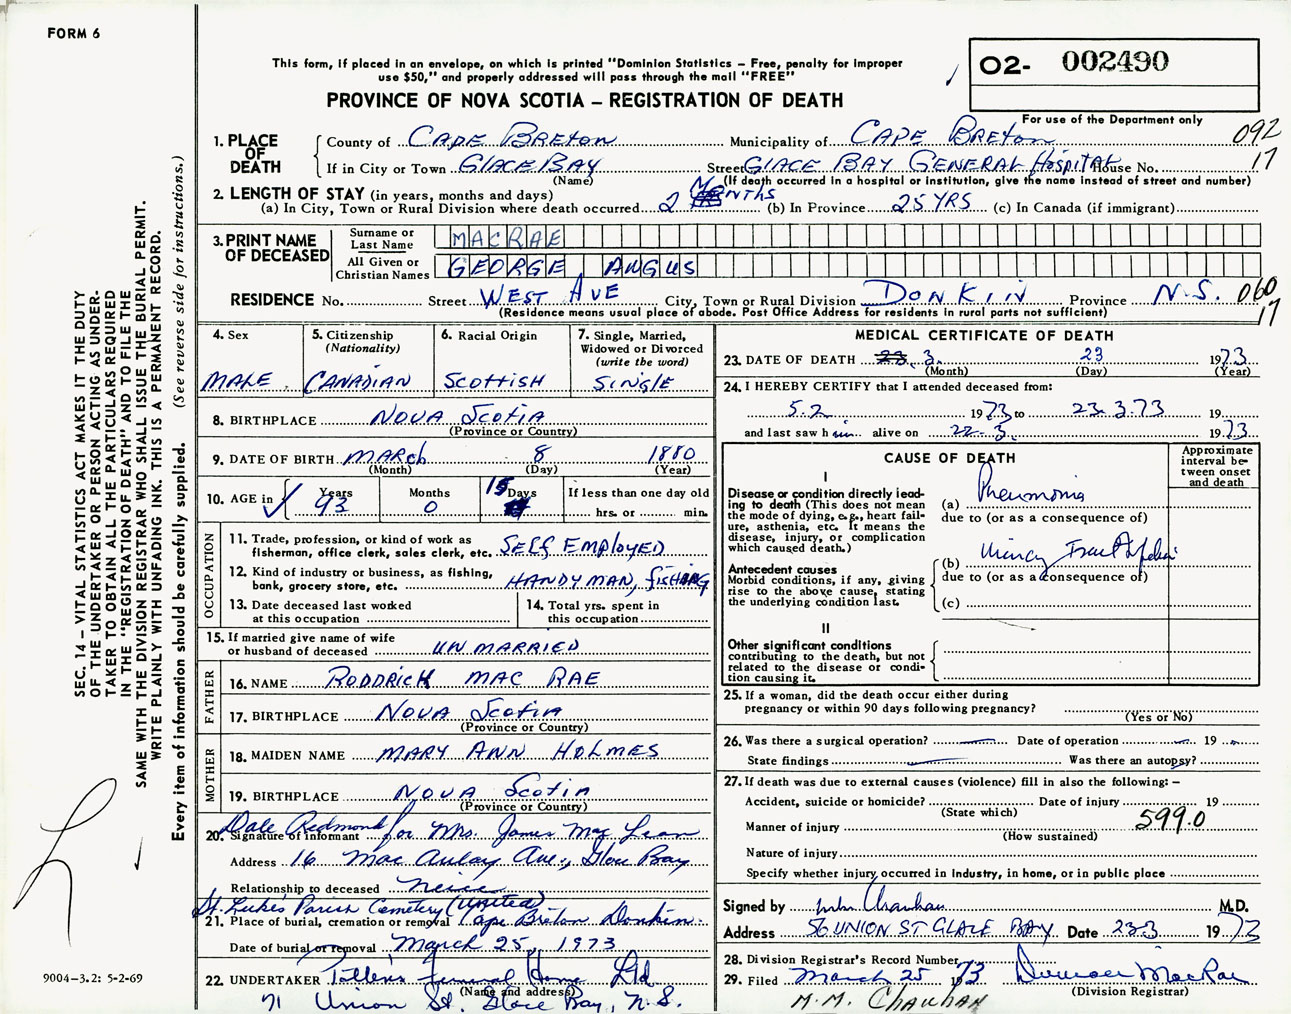 FORM 6
This form, if placed in an envelope, on which is printed "Dominion Statistics – Free, penalty for improper
use $50," and properly addressed will pass through the mail "FREE"
PROVINCE OF NOVA SCOTIA – REGISTRATION OF DEATH
O2- 002490
For use of the Department only
092
17
1. PLACE OF DEATH County of CAPE BRETON Municipality of CAPE BRETON
If in City or Town GLACE BAY Street GLACE BAY GENERAL HOSPITAL House No.
(Name) (If death occurred in a hospital or institution, give the name instead of street and number)
2. LENGTH OF STAY (in years, months and days)
(a) In City, Town or Rural Division where death occurred 2 MONTHS (b) In Province 25 YRS (c) In Canada (if immigrant)
3. PRINT NAME OF DECEASED
Surname or Last Name MACRAE
All Given or Christian Names GEORGE, ANGUS
RESIDENCE No. Street WEST AVE City, Town or Rural Division DONKIN Province N.S. 060
17
(Residence means usual place of abode. Post Office Address for residents in rural parts not sufficient)
4. Sex MALE
5. Citizenship (Nationality) CANADIAN
6. Racial Origin SCOTTISH
7. Single, Married, Widowed or Divorced (write the word) SINGLE
8. BIRTHPLACE NOVA SCOTIA
(Province or Country)
9. DATE OF BIRTH MARCH 8 1880
(Month) (Day) (Year)
10. AGE in Years 93 Months 0 Days 15 If less than one day old hrs. or min.
OCCUPATION
11. Trade, profession, or kind of work as
fisherman, office clerk, sales clerk, etc. SELF EMPLOYED
12. Kind of industry or business, as fishing,
bank, grocery store, etc. HANDYMAN, FISHING
13. Date deceased last worked
at this occupation
14. Total yrs. spent in
this occupation
15. If married give name of wife
or husband of deceased UNMARRIED
FATHER
16. NAME RODDRICK MAC RAE
17. BIRTHPLACE NOVA SCOTIA
(Province or Country)
MOTHER
18. MAIDEN NAME MARY ANN HOLMES
19. BIRTHPLACE NOVA SCOTIA
(Province or Country)
20. Signature of informant Dale Redmond for Mrs. James Mac Lean
Address 16 Mac Aulay Ave., Glace Bay
Relationship to deceased neice
St. Luke's Parish Cemetery (United)
21. Place of burial, cremation or removal Cape Breton Donkin
Date of burial or removal March 25, 1973
22. UNDERTAKER Funeral Home Ltd
(Name and address)
71 Union St. Glace Bay, N.S.
MEDICAL CERTIFICATE OF DEATH
23. DATE OF DEATH 3. 23 1973
(Month) (Day) (Year)
24. I HEREBY CERTIFY that I attended deceased from:
5.2 1973 to 23.3.73 19
and last saw him alive on 22-3. 1973
CAUSE OF DEATH
Approximate interval between onset and death
I
Disease or condition directly leading to death (This does not mean the mode of dying, e.g., heart failure, asthenia, etc. It means the disease, injury, or complication which caused death.)
(a) Pneumonia
due to (or as a consequence of)
(b) Urinary Tract Infection
due to (or as a consequence of)
(c)
Antecedent causes
Morbid conditions, if any, giving rise to the above cause, stating the underlying condition last.
II
Other significant conditions
contributing to the death, but not related to the disease or condition causing it.
25. If a woman, did the death occur either during
pregnancy or within 90 days following pregnancy?
(Yes or No)
26. Was there a surgical operation? Date of operation 19
State findings Was there an autopsy?
27. If death was due to external causes (violence) fill in also the following: –
Accident, suicide or homicide? Date of injury 19
(State which)
Manner of injury 599.0
(How sustained)
Nature of injury
Specify whether injury occurred in industry, in home, or in public place
Signed by Chauhan M.D.
Address 56 UNION ST GLACE BAY Date 23.3 1973
28. Division Registrar's Record Number
29. Filed March 25 1973 MacRae
(Division Registrar)
M. M. CHAUHAN
SEC. 14 – VITAL STATISTICS ACT MAKES IT THE DUTY
OF THE UNDERTAKER OR PERSON ACTING AS UNDER-
TAKER TO OBTAIN ALL THE PARTICULARS REQUIRED
IN THE "REGISTRATION OF DEATH" AND TO FILE THE
SAME WITH THE DIVISION REGISTRAR WHO SHALL ISSUE THE BURIAL PERMIT.
WRITE PLAINLY WITH UNFADING INK. THIS IS A PERMANENT RECORD.
Every item of information should be carefully supplied. (See reverse side for instructions.)
9004-3.2: 5-2-69